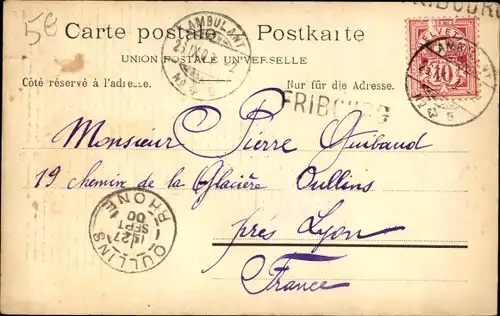 5e
FRIBOURG
Carte postale Postkarte
AMBULANT
UNION POSTALE UNIVERSELLE
No 3
HELVETIA
10
AMBULANT
No 3
Côté réservé à l'adresse. Nur für die Adresse.
FRIBOURG
Monsieur Pierre Guibaud
19 chemin de la Glacière Oullins
près Lyon
France
OULLINS
RHONE
27
SEPT
00